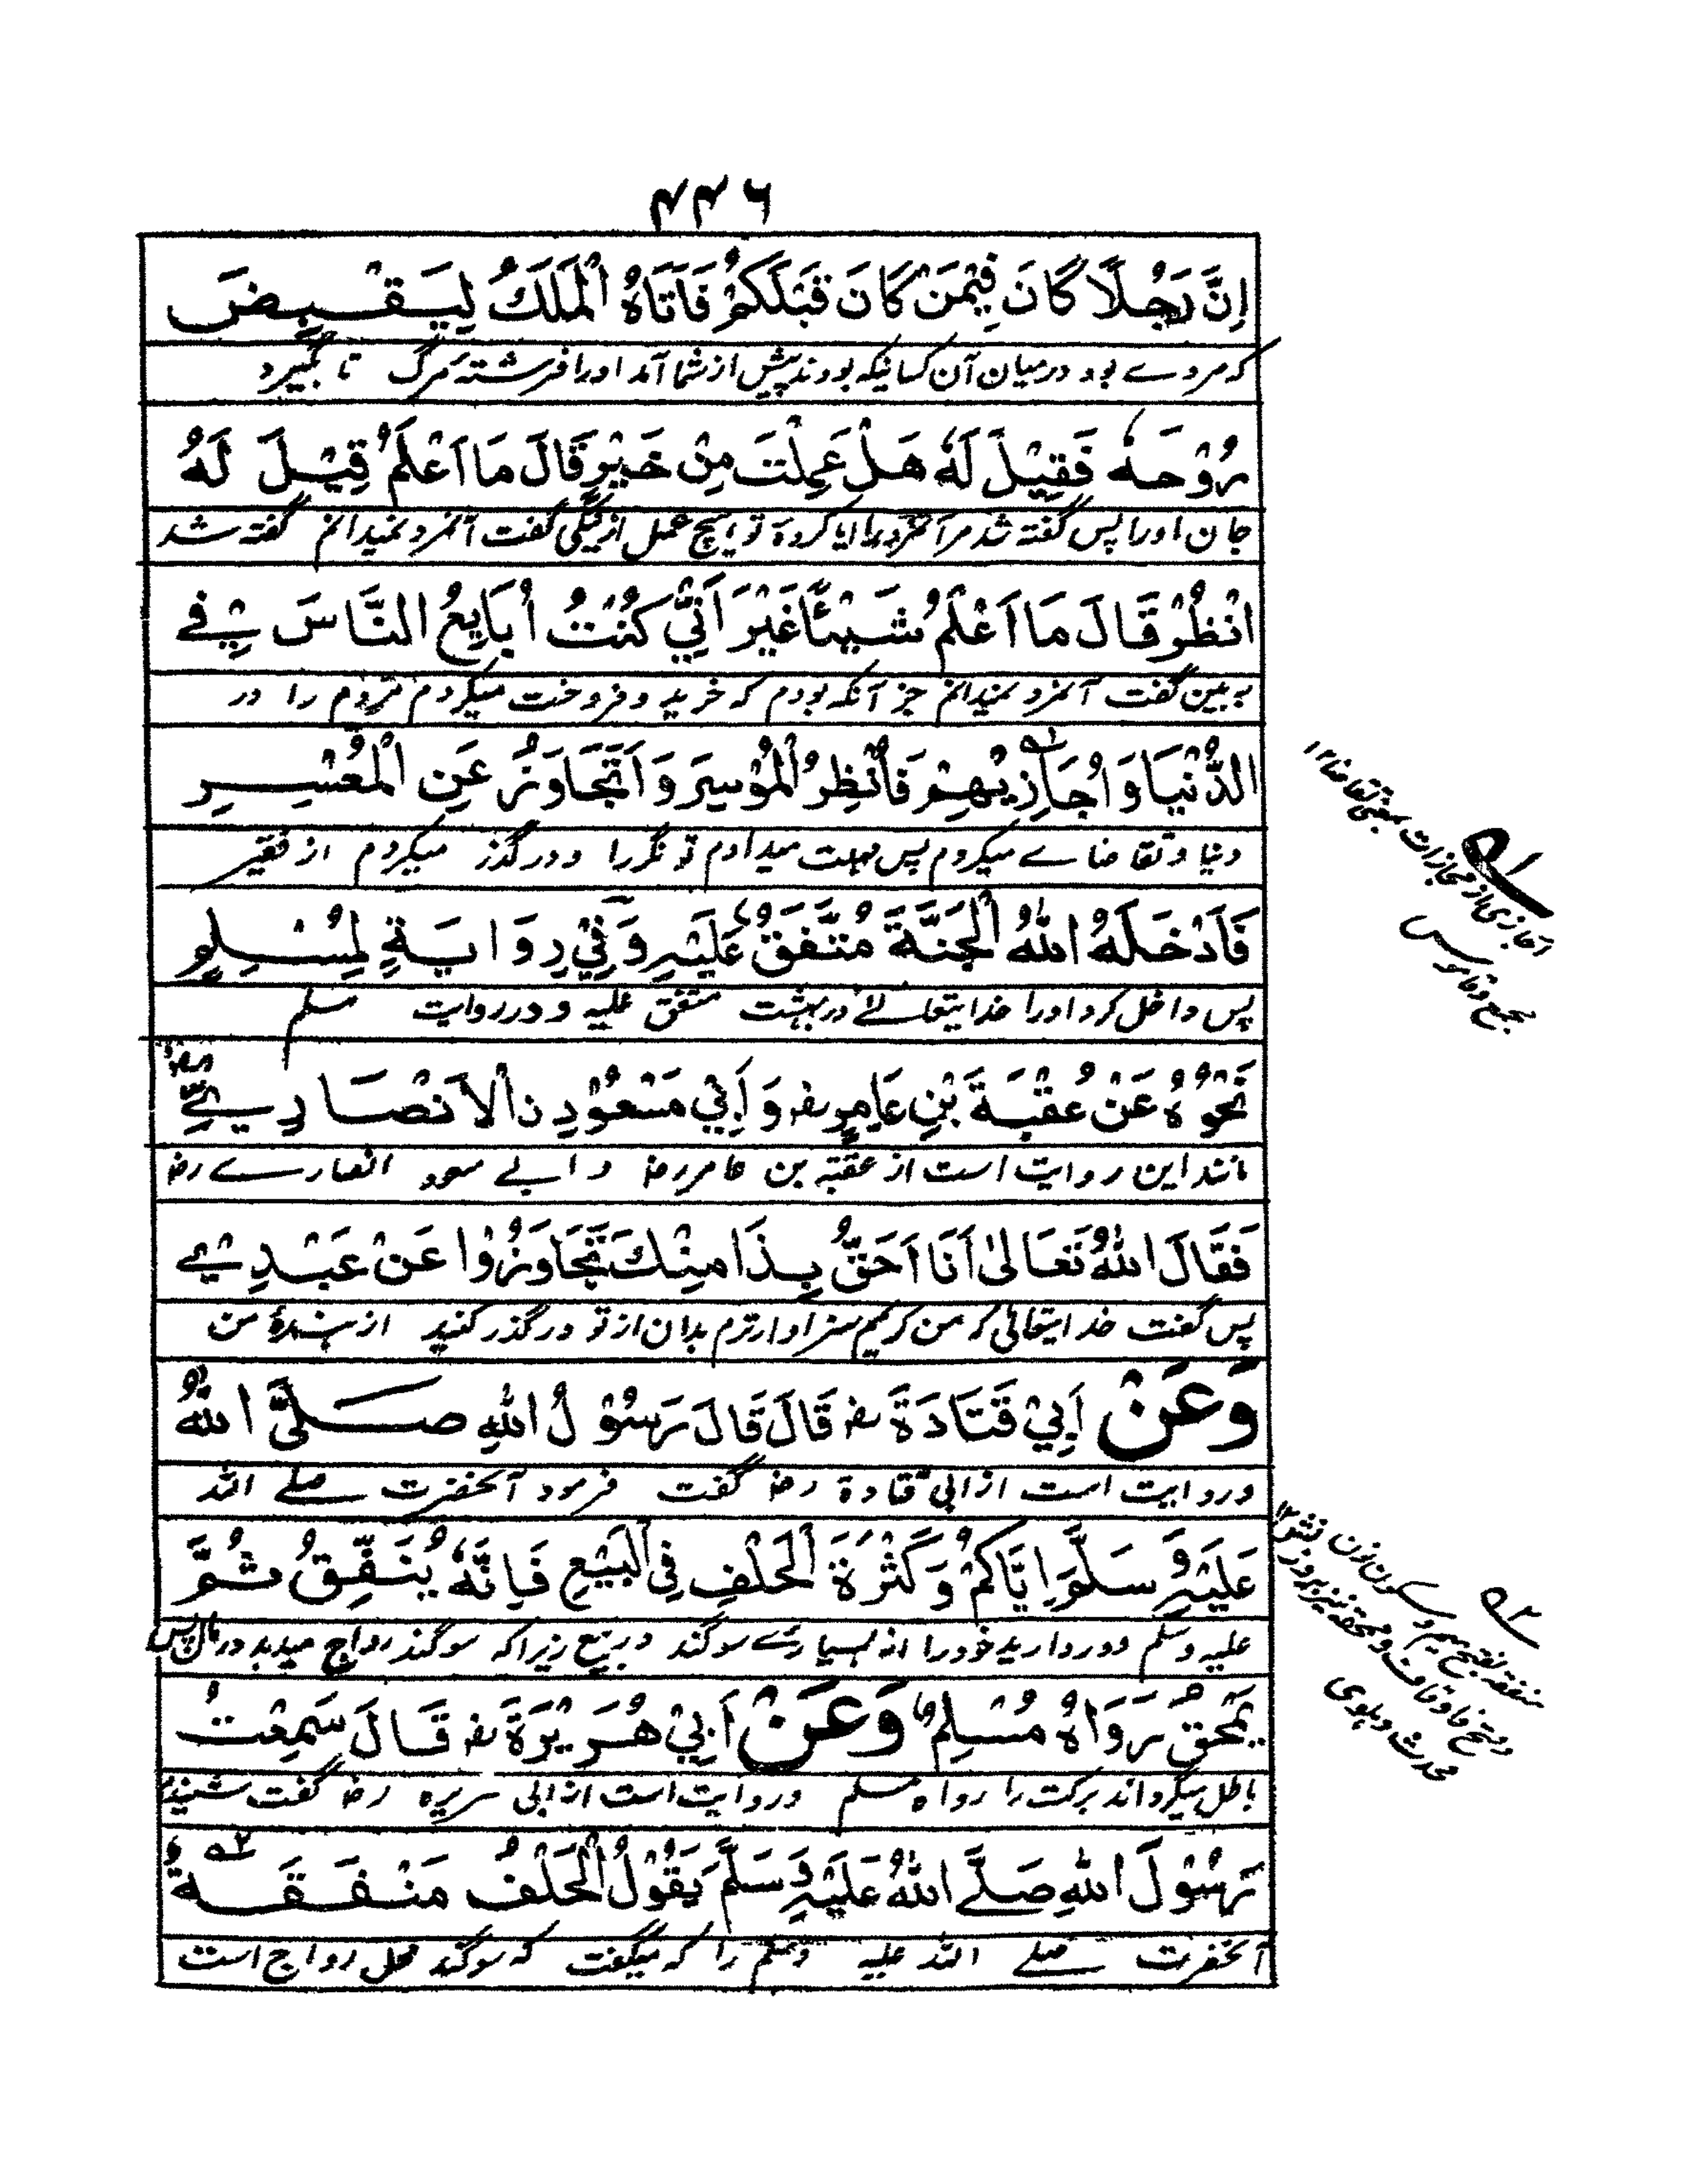 ۴۴۶
اِنَّ رَجُلًا كَانَ فِيْمَنْ كَانَ قَبْلَكُمْ فَاَتَاهُ الْمَلَكُ لِيَقْبِضَ
که مردے بود درمیان آن کسانیکه بودند پیش از شما آمد اورا فرشتۀ مرگ تا بگیرد
رُوْحَهٗ فَقِيْلَ لَهٗ هَلْ عَمِلْتَ مِنْ خَيْرٍ قَالَ مَا اَعْلَمُ قِيْلَ لَهُ
جان اورا پس گفته شد مر آنمرد را ایا کردۀ تو هیچ عمل از نیکی گفت آنمرد نمیدانم گفته شد
انْظُرْ قَالَ مَا اَعْلَمُ شَيْئًا غَيْرَ اَنِّيْ كُنْتُ اُبَايِعُ النَّاسَ فِي
به بین گفت آنمرد نمیدانم جز آنکه بودم که خرید و فروخت میکردم مردم را در
الدُّنْيَا وَاُجَازِيْهِمْ فَاُنْظِرُ الْمُوْسِرَ وَاَتَجَاوَزُ عَنِ الْمُعْسِرِ
دنیا و تقاضاے میکردم پس مهلت میدادم تونگر را و درگذر میکردم از فقیر
فَاَدْخَلَهُ اللهُ الْجَنَّةَ مُتَّفَقٌ عَلَيْهِ وَفِيْ رِوَايَةٍ لِمُسْلِمٍ
پس داخل کرد اورا خدایتعالے در بهشت متفق علیه و در روایت مسلم
نَحْوُهُ عَنْ عُقْبَةَ بْنِ عَامِرٍ رض وَاَبِيْ مَسْعُوْدِ نِ الْاَنْصَارِيِّ رض
مانند این روایت است از عقبة بن عامر رض و ابے مسعود انصارے رض
فَقَالَ اللهُ تَعَالىٰ اَنَا اَحَقُّ بِذَا مِنْكَ تَجَاوَزُوْا عَنْ عَبْدِيْ
پس گفت خدایتعالی که من کریمم سزاوارترم بدان از تو درگذر کنید از بندۀ من
وَعَنْ اَبِيْ قَتَادَةَ رض قَالَ قَالَ رَسُوْلُ اللهِ صَلَّى اللهُ
و روایت است از ابی قتادة رض گفت فرمود آنحضرت صلے الله
عَلَيْهِ وَسَلَّمَ اِيَّاكُمْ وَكَثْرَةَ الْحَلْفِ فِي الْبَيْعِ فَاِنَّهٗ يُنَفِّقُ ثُمَّ
علیه وسلم دور دارید خود را از بسیارے سوگند در بیع زیراکه سوگند رواج میدهد در مال پس
يَمْحَقُ رَوَاهُ مُسْلِمٌ وَعَنْ اَبِيْ هُرَيْرَةَ رض قَالَ سَمِعْتُ
باطل میگرداند برکت را رواه مسلم و روایت است از ابی هریره رض گفت شنیدم
رَسُوْلَ اللهِ صَلَّے اللهُ عَلَيْهِ وَسَلَّمَ يَقُوْلُ الْحَلْفُ مَنْفَقَةٌ
آنحضرت صلے الله علیه وسلم را که میگفت که سوگند محل رواج است
۱
اجازی از مجازات بمعنی تقاضا ۱۲
مجمع و قاموس
۲
منفقه بفتح میم و سکون نون
و فتح فا و قاف و محقه نیز بر وزنش ۱۲
محدث دهلوی